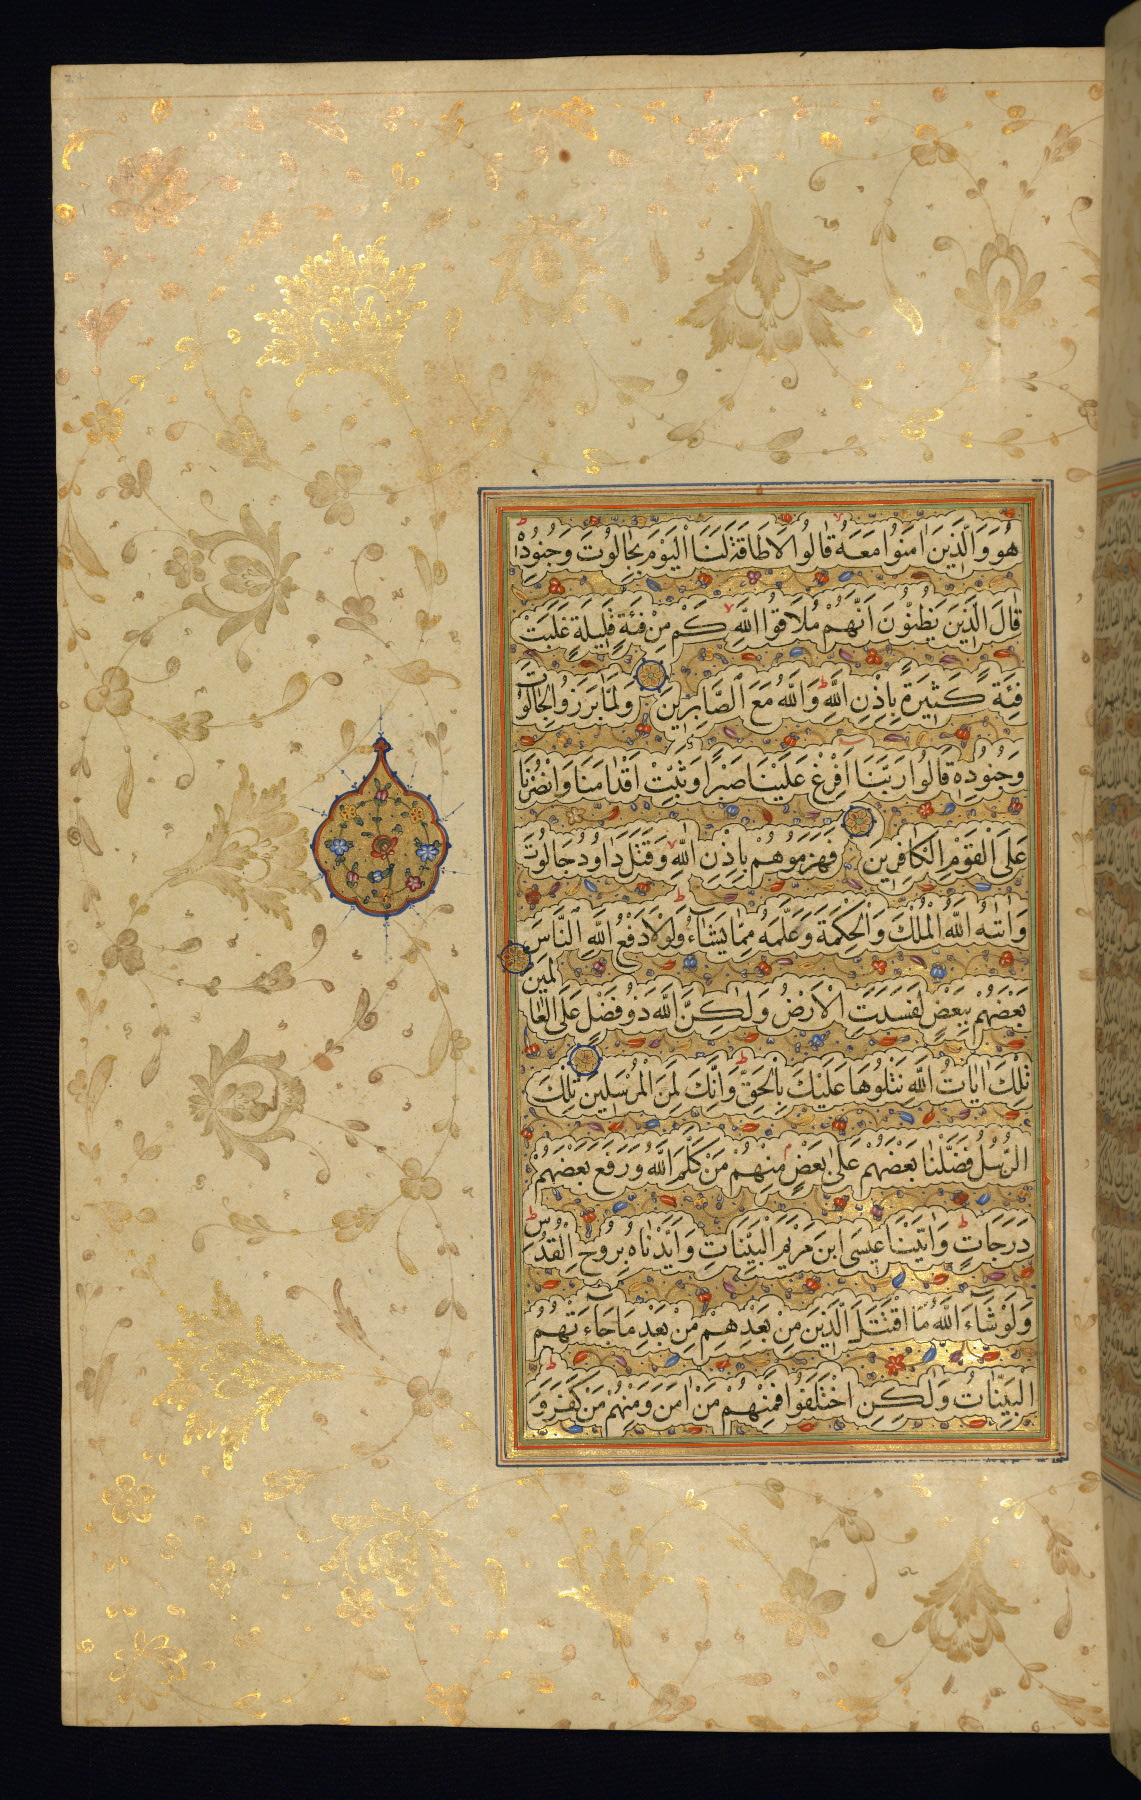 هُوَ وَالَّذِينَ اٰمَنُوا مَعَهُ قَالُوا لَا طَاقَةَ لَنَا الْيَوْمَ بِجَالُوتَ وَجُنُودِهِ
قَالَ الَّذِينَ يَظُنُّونَ اَنَّهُمْ مُلَاقُوا اللّٰهِ كَمْ مِنْ فِئَةٍ قَلِيلَةٍ غَلَبَتْ
فِئَةً كَثِيرَةً بِاِذْنِ اللّٰهِ وَاللّٰهُ مَعَ الصَّابِرِينَ وَلَمَّا بَرَزُوا لِجَالُوتَ
وَجُنُودِهِ قَالُوا رَبَّنَا اَفْرِغْ عَلَيْنَا صَبْرًا وَثَبِّتْ اَقْدَامَنَا وَانْصُرْنَا
عَلَى الْقَوْمِ الْكَافِرِينَ فَهَزَمُوهُمْ بِاِذْنِ اللّٰهِ وَقَتَلَ دَاوُدُ جَالُوتَ
وَاٰتٰيهُ اللّٰهُ الْمُلْكَ وَالْحِكْمَةَ وَعَلَّمَهُ مِمَّا يَشَاءُ وَلَوْلَا دَفْعُ اللّٰهِ النَّاسَ
بَعْضَهُمْ بِبَعْضٍ لَفَسَدَتِ الْاَرْضُ وَلٰكِنَّ اللّٰهَ ذُو فَضْلٍ عَلَى الْعَالَمِينَ
تِلْكَ اٰيَاتُ اللّٰهِ نَتْلُوهَا عَلَيْكَ بِالْحَقِّ وَاِنَّكَ لَمِنَ الْمُرْسَلِينَ تِلْكَ
الرُّسُلُ فَضَّلْنَا بَعْضَهُمْ عَلٰى بَعْضٍ مِنْهُمْ مَنْ كَلَّمَ اللّٰهُ وَرَفَعَ بَعْضَهُمْ
دَرَجَاتٍ وَاٰتَيْنَا عِيسَى ابْنَ مَرْيَمَ الْبَيِّنَاتِ وَاَيَّدْنَاهُ بِرُوحِ الْقُدُسِ
وَلَوْ شَاءَ اللّٰهُ مَا اقْتَتَلَ الَّذِينَ مِنْ بَعْدِهِمْ مِنْ بَعْدِ مَا جَاءَتْهُمُ
الْبَيِّنَاتُ وَلٰكِنِ اخْتَلَفُوا فَمِنْهُمْ مَنْ اٰمَنَ وَمِنْهُمْ مَنْ كَفَرَ وَ